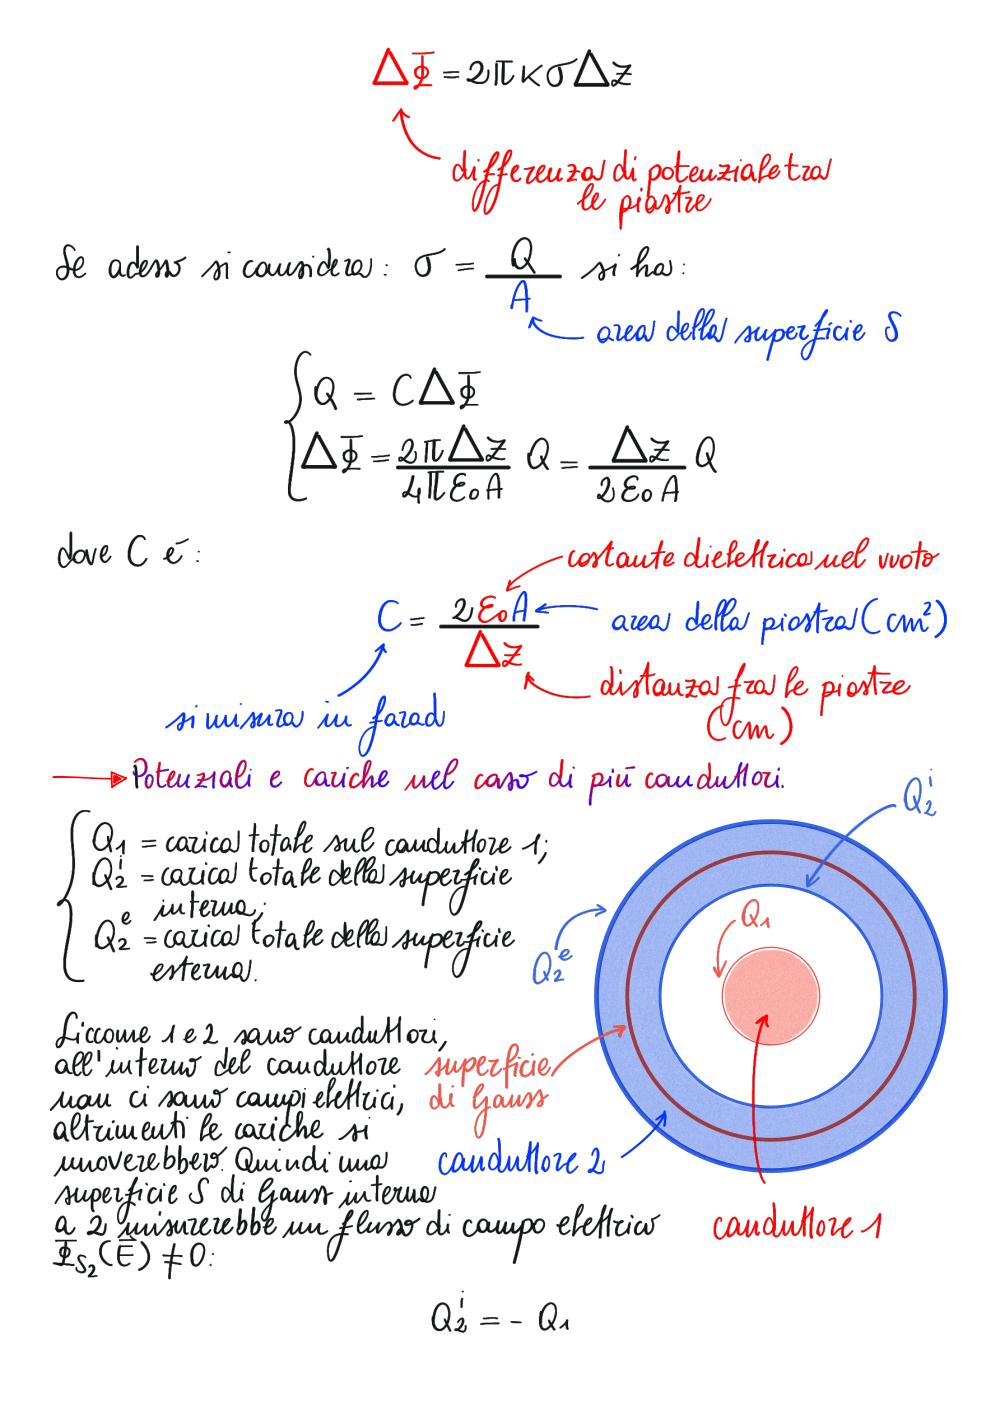 ΔΦ = 2πκσΔz
differenza di potenziale tra
le piastre
Se adesso si considera: σ = Q/A si ha:
area della superficie S
Q = CΔΦ
ΔΦ = 2πΔz/4πε₀A Q = Δz/2ε₀A Q
dove C é:
costante dielettrica nel vuoto
C = 2ε₀A/Δz
area della piastra (cm²)
distanza fra le piastre
(cm)
si misura in farad
Potenziali e cariche nel caso di piú conduttori.
Q₂ⁱ
Q₁ = carica totale sul conduttore 1;
Q₂ⁱ = carica totale della superficie
interna;
Q₂ᵉ = carica totale della superficie
esterna.
Q₁
Q₂ᵉ
Siccome 1 e 2 sono conduttori,
all'interno del conduttore
non ci sono campi elettrici,
altrimenti le cariche si
muoverebbero. Quindi una
superficie S di Gauss interna
a 2 misurerebbe un flusso di campo elettrico
Φ_S₂(E̅) ≠ 0:
superficie
di Gauss
conduttore 2
conduttore 1
Q₂ⁱ = - Q₁